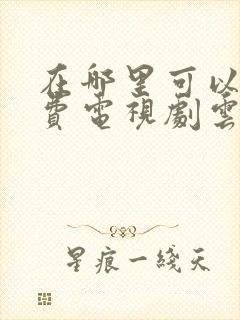 在哪里可以
費電視劇雲
星痕一綫天